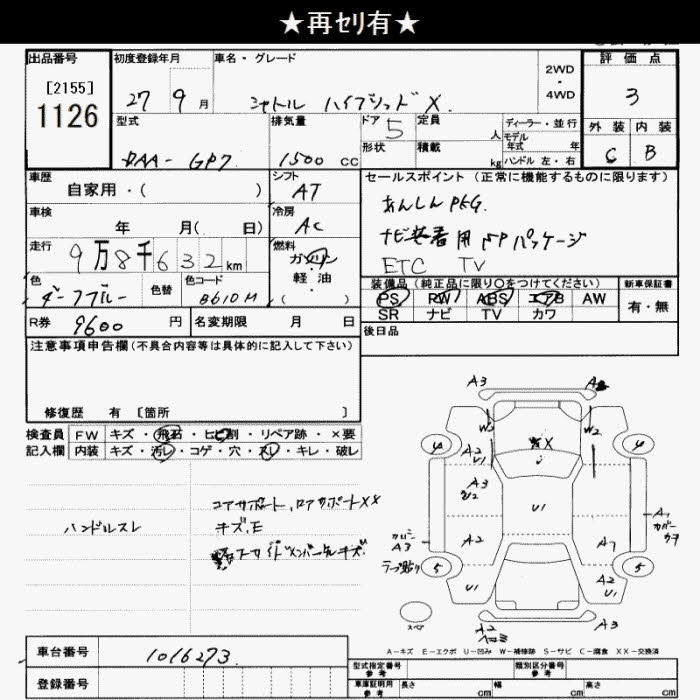 ★再セリ有★
出品番号 初度登録年月 車名・グレード 2WD・4WD 評価点
[2155]
1126
27 9月 シャトル ハイブリッド X 3
型式 排気量 ドア 5 定員 人 ディーラー・並行 外装 内装
モデル年式 年
形状 積載 kg ハンドル 左・右
DAA- GP7 1500 cc C B
車歴 シフト セールスポイント (正常に機能するものに限ります)
自家用・( ) AT あんしんPKG.
車検 冷房
年 月( 日) AC ナビ装着用 パッケージ
走行 燃料
9万8千632km ガソリン ETC TV
軽油
色 色替 色コード 装備品 (純正品に限り○をつけてください) 新車保証書
ダークブルー B610M ( ) PS PW ABS エアB AW 有・無
SR ナビ TV カワ
R券 9600 円 名変期限 月 日 後日品
注意事項申告欄(不具合内容等は具体的に記入して下さい)
修復歴 有 [箇所 ]
検査員 FW キズ・飛石・ヒビ割・リペア跡・×要
記入欄 内装 キズ・汚レ・コゲ・穴・スレ・キレ・破レ
コアサポート、ロアサポートXX
ハンドルスレ キズ、E
A3
W2 W2
X
A2 U1
A3 U2
U1
A2 A7
A3
5 5
U1 A2 U1
A2 A3
スペア
A-キズ E-エクボ U-凹み W-補修跡 S-サビ C-腐食 XX-交換済
車台番号 1016273
型式指定番号 参考 類別区分番号 参考
登録番号 車庫証明用 参考 長さ cm 幅 cm 高さ cm